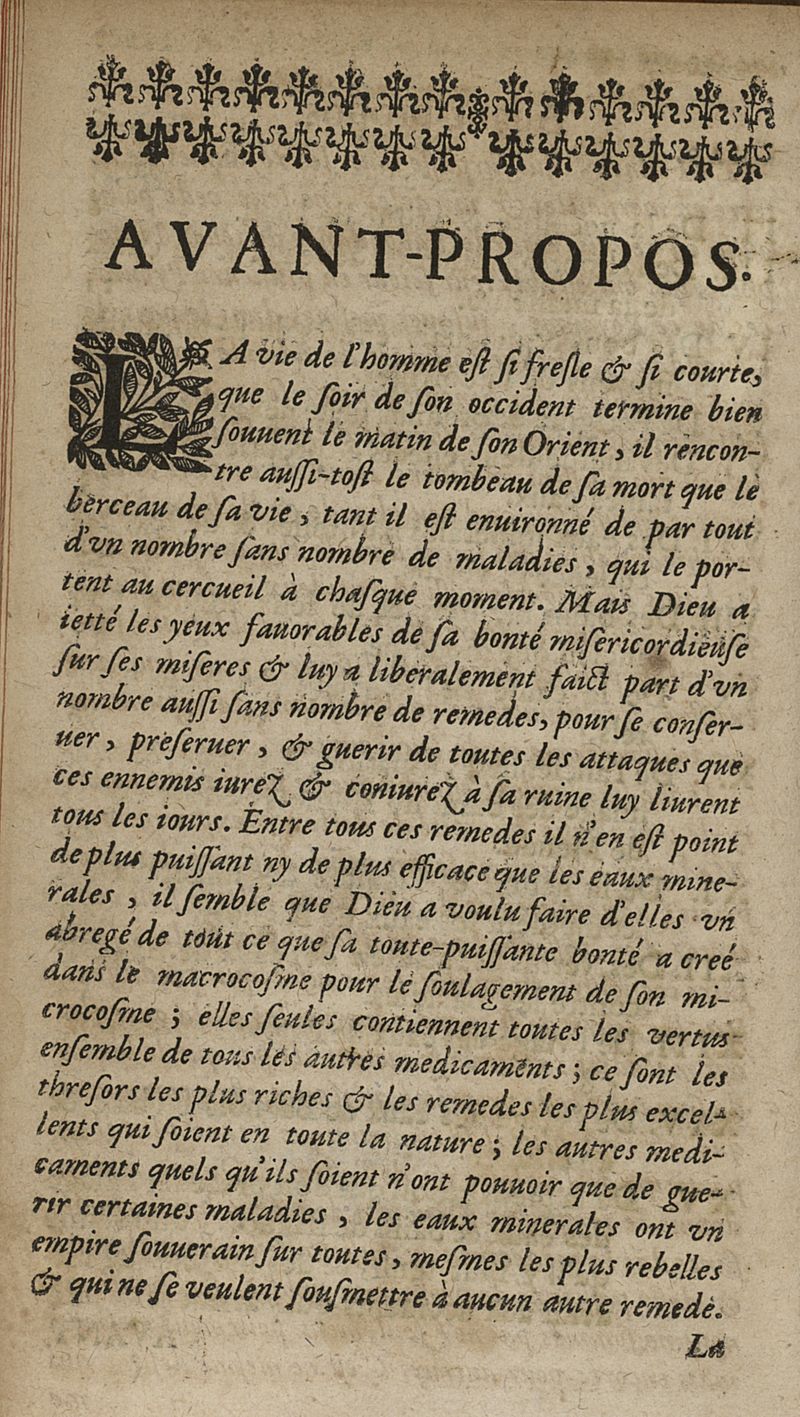 AVANT-PROPOS.
LA vie de l'homme eſt ſi freſle & ſi courte,
que le ſoir de ſon occident termine bien
ſouuent le matin de ſon Orient, il rencon-
tre auſſi-toſt le tombeau de ſa mort que le
berceau de ſa vie, tant il eſt enuironné de par tout
d'vn nombre ſans nombre de maladies, qui le por-
tent au cercueil à chaſque moment. Mais Dieu a
ietté les yeux fauorables de ſa bonté miſericordieuſe
ſur ſes miſeres & luy a liberalement faict part d'vn
nombre auſſi ſans nombre de remedes, pour ſe conſer-
uer, preſeruer, & guerir de toutes les attaques que
ces ennemis iurez & coniurez à ſa ruine luy liurent
tous les iours. Entre tous ces remedes il n'en eſt point
de plus puiſſant ny de plus efficace que les eaux mine-
rales, il ſemble que Dieu a voulu faire d'elles vn
abregé de tout ce que ſa toute-puiſſante bonté a creé
dans le macrocoſme pour le ſoulagement de ſon mi-
crocoſme; elles ſeules contiennent toutes les vertus
enſemble de tous les autres medicamēts; ce ſont les
threſors les plus riches & les remedes les plus excel-
lents qui ſoient en toute la nature; les autres medi-
caments quels qu'ils ſoient n'ont pouuoir que de gue-
rir certaines maladies, les eaux minerales ont vn
empire ſouuerain ſur toutes, meſmes les plus rebelles
& qui ne ſe veulent ſouſmettre à aucun autre remede.
La